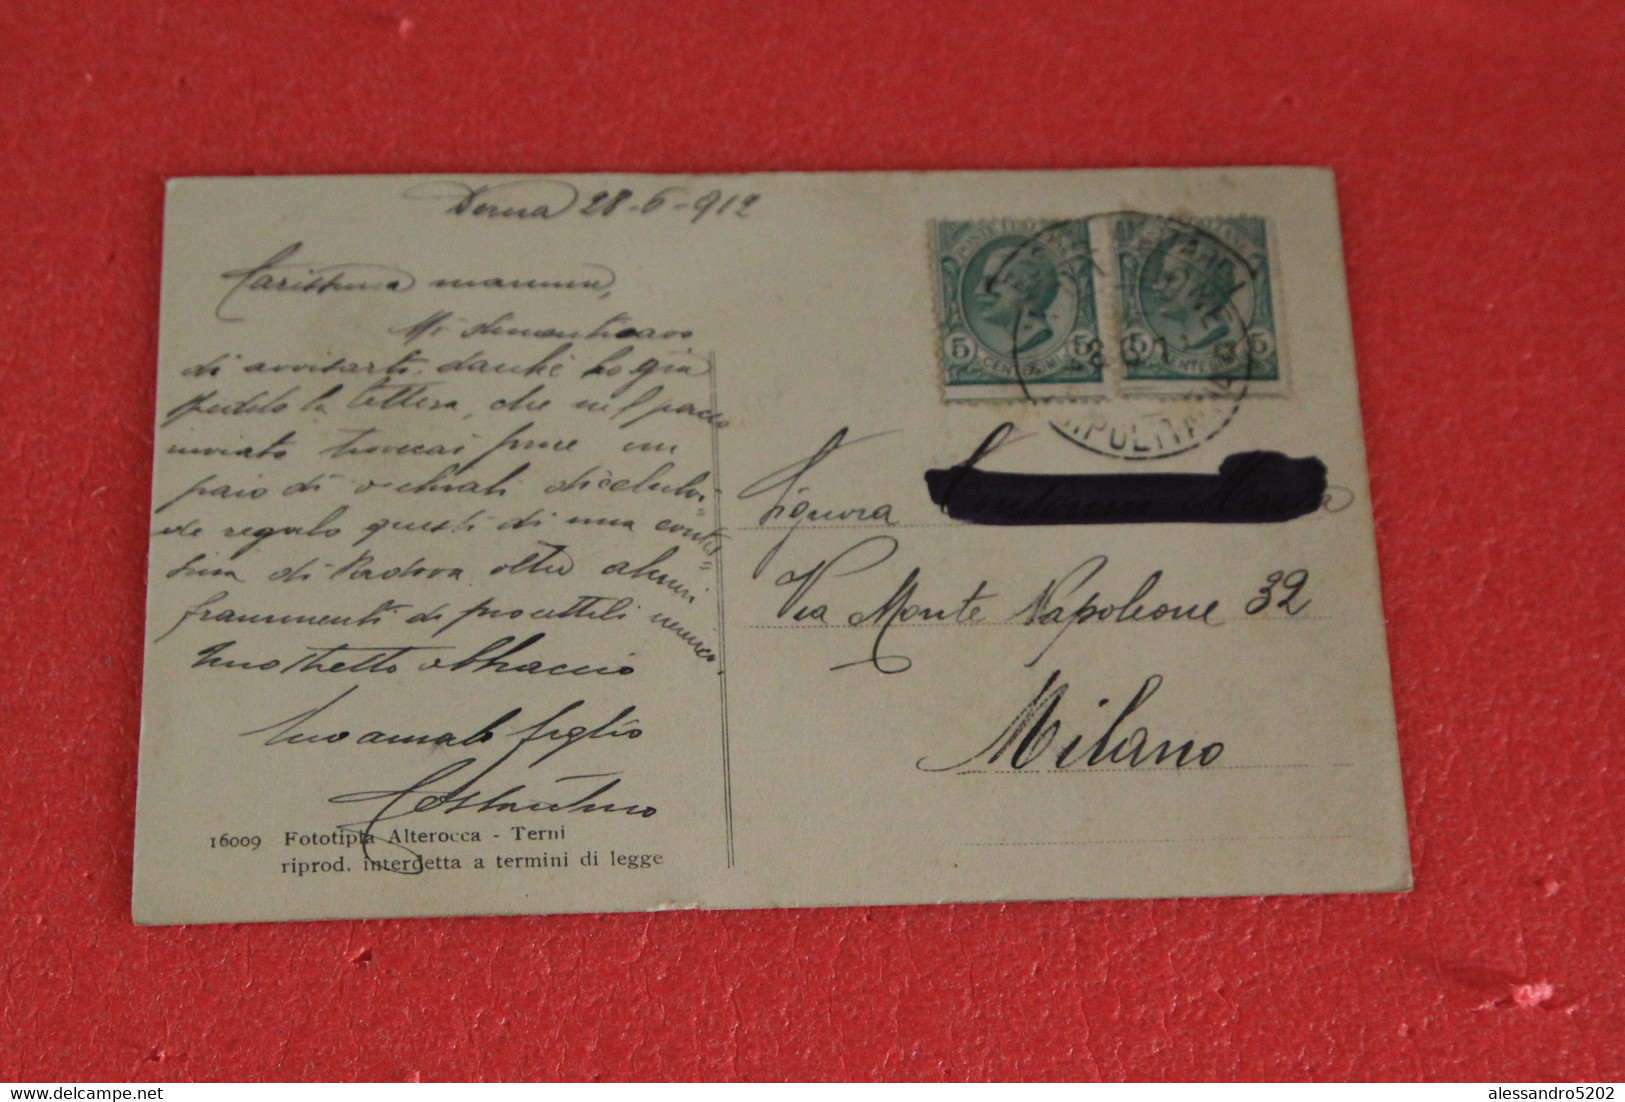 Derna 28-6-912
Carissima mamma,
Mi dimenticavo
di avvisarti, danchè ho già
spedito la lettera, che nel pacco
inviato troverai pure un
paio di occhiali di celuloi=
de regalo questi di una contes=
sina di Padova oltre alcuni
frammenti di proiettili nemici.
Uno stretto abbraccio
tuo amato figlio
Costantino
16009 Fototipia Alterocca - Terni
riprod. interdetta a termini di legge
POSTE ITALIANE
5 CENTESIMI 5
POSTE ITALIANE
5 CENTESIMI 5
Signora
Via Monte Napoleone 32
Milano
alessandro5202